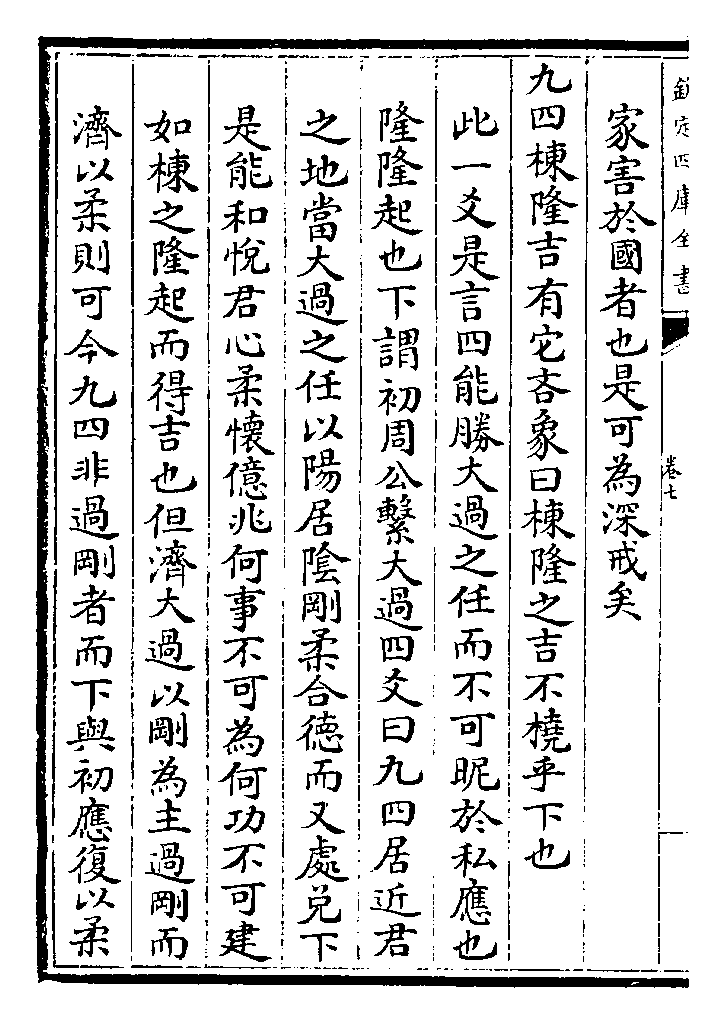 欽定四庫全書
卷七
家害於國者也是可為深戒矣
九四棟隆吉有它吝象曰棟隆之吉不橈乎下也
此一爻是言四能勝大過之任而不可昵於私應也
隆隆起也下謂初周公繫大過四爻曰九四居近君
之地當大過之任以陽居陰剛柔合德而又處兌下
是能和悅君心柔懷億兆何事不可為何功不可建
如棟之隆起而得吉也但濟大過以剛為主過剛而
濟以柔則可今九四非過剛者而下與初應復以柔